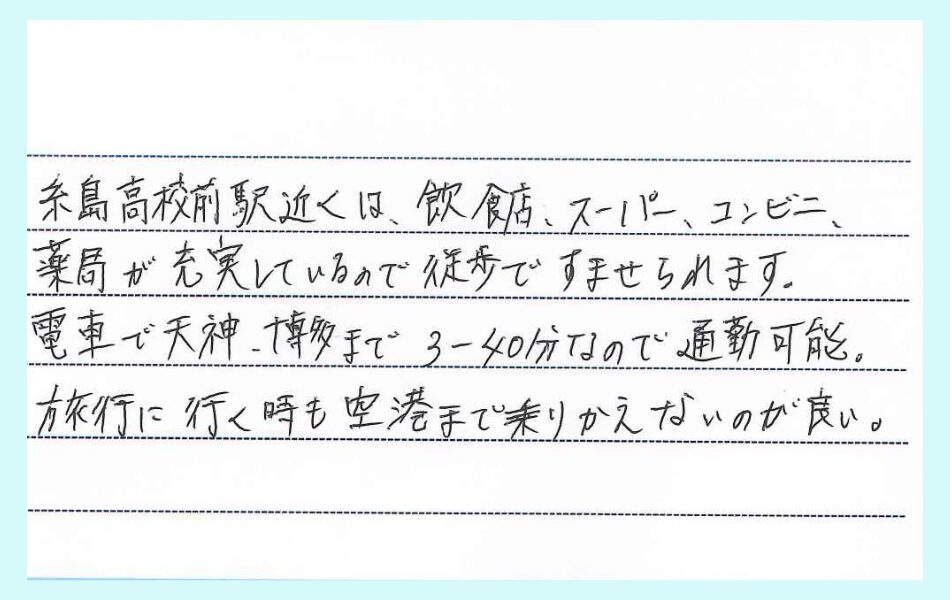 糸島高校前駅近くは、飲食店、スーパー、コンビニ、
薬局が充実しているので徒歩ですませられます。
電車で天神、博多まで3-40分なので通勤可能。
旅行に行く時も空港まで乗りかえないのが良い。